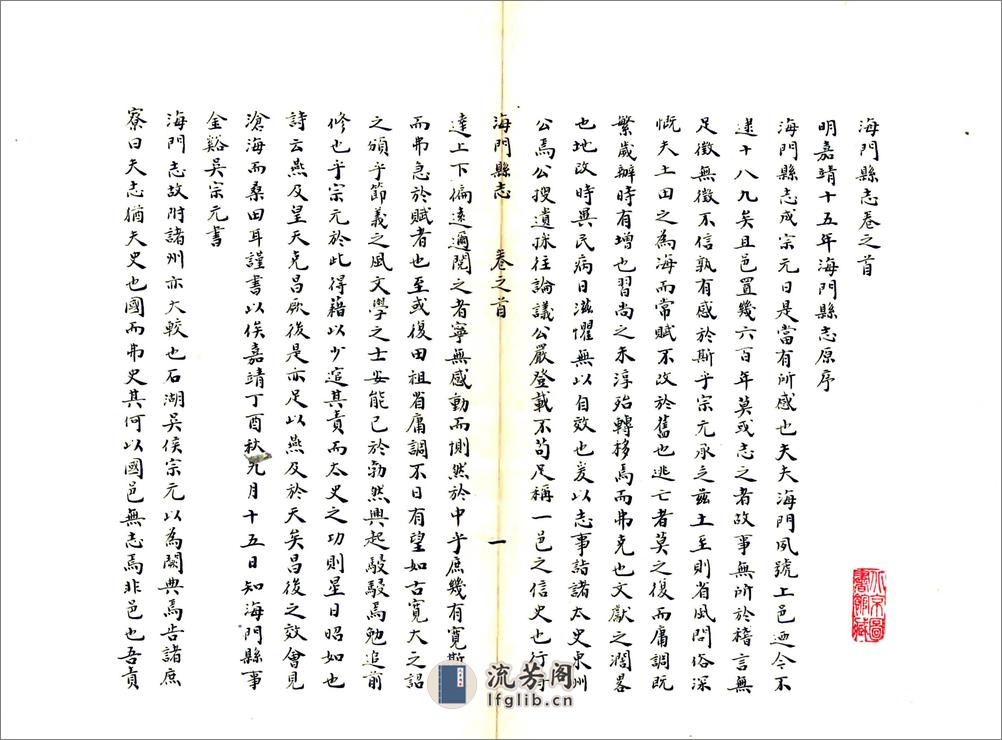 海門縣志卷之首
明嘉靖十五年海門縣志原序
海門縣志成宗元日是當有所感也夫夫海門夙號上邑迺今不
逮十八九矣且邑置幾六百年莫或志之者故事無所於稽言無
足徵無徵不信孰有感於斯乎宗元承乏茲土至則省風問俗深
慨夫土田之為海而常賦不改於舊也逃亡者莫之復而庸調既
繁歲辦時有增也習尚之未淳殆轉移焉而弗克也文獻之濶畧
也地改時異民病日滋懼無以自效也爰以志事詣諸太史東州
公焉公搜遺採往論議公嚴登載不苟足稱一邑之信史也行
海門縣志 卷之首 一
達上下偏遠邇閱之者寧無感動而惻然於中乎庶幾有寬斯
而弗急於賦者也至或復田祖省庸調不日有望如古寬大之詔
之頒乎節義之風文學之士妥能已於勃然興起駸駸焉勉追前
修也乎宗元於此得藉以少逭其責而太史之功則星日昭如也
詩云燕及皇天克昌厥後是亦足以燕及於天矣昌後之效會見
滄海而桑田耳謹書以俟嘉靖丁酉秋九月十五日知海門縣事
金谿吳宗元書
海門志故附諸州亦大較也石湖吳侯宗元以為闕典焉告諸庶
寮曰夫志猶夫史也國而弗史其何以國邑無志焉非邑也吾責
北京圖
書館藏
流芳阁
lfglib.cn